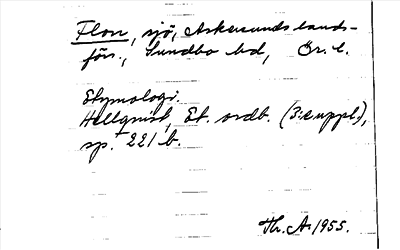 Flon, sjö, Askersunds lands-
förs., Sundbo hd, Ör. l.
Etymologi.
Hellquist, Et. ordb. (3:e uppl.),
sp. 221 b.
Th. A. 1955.